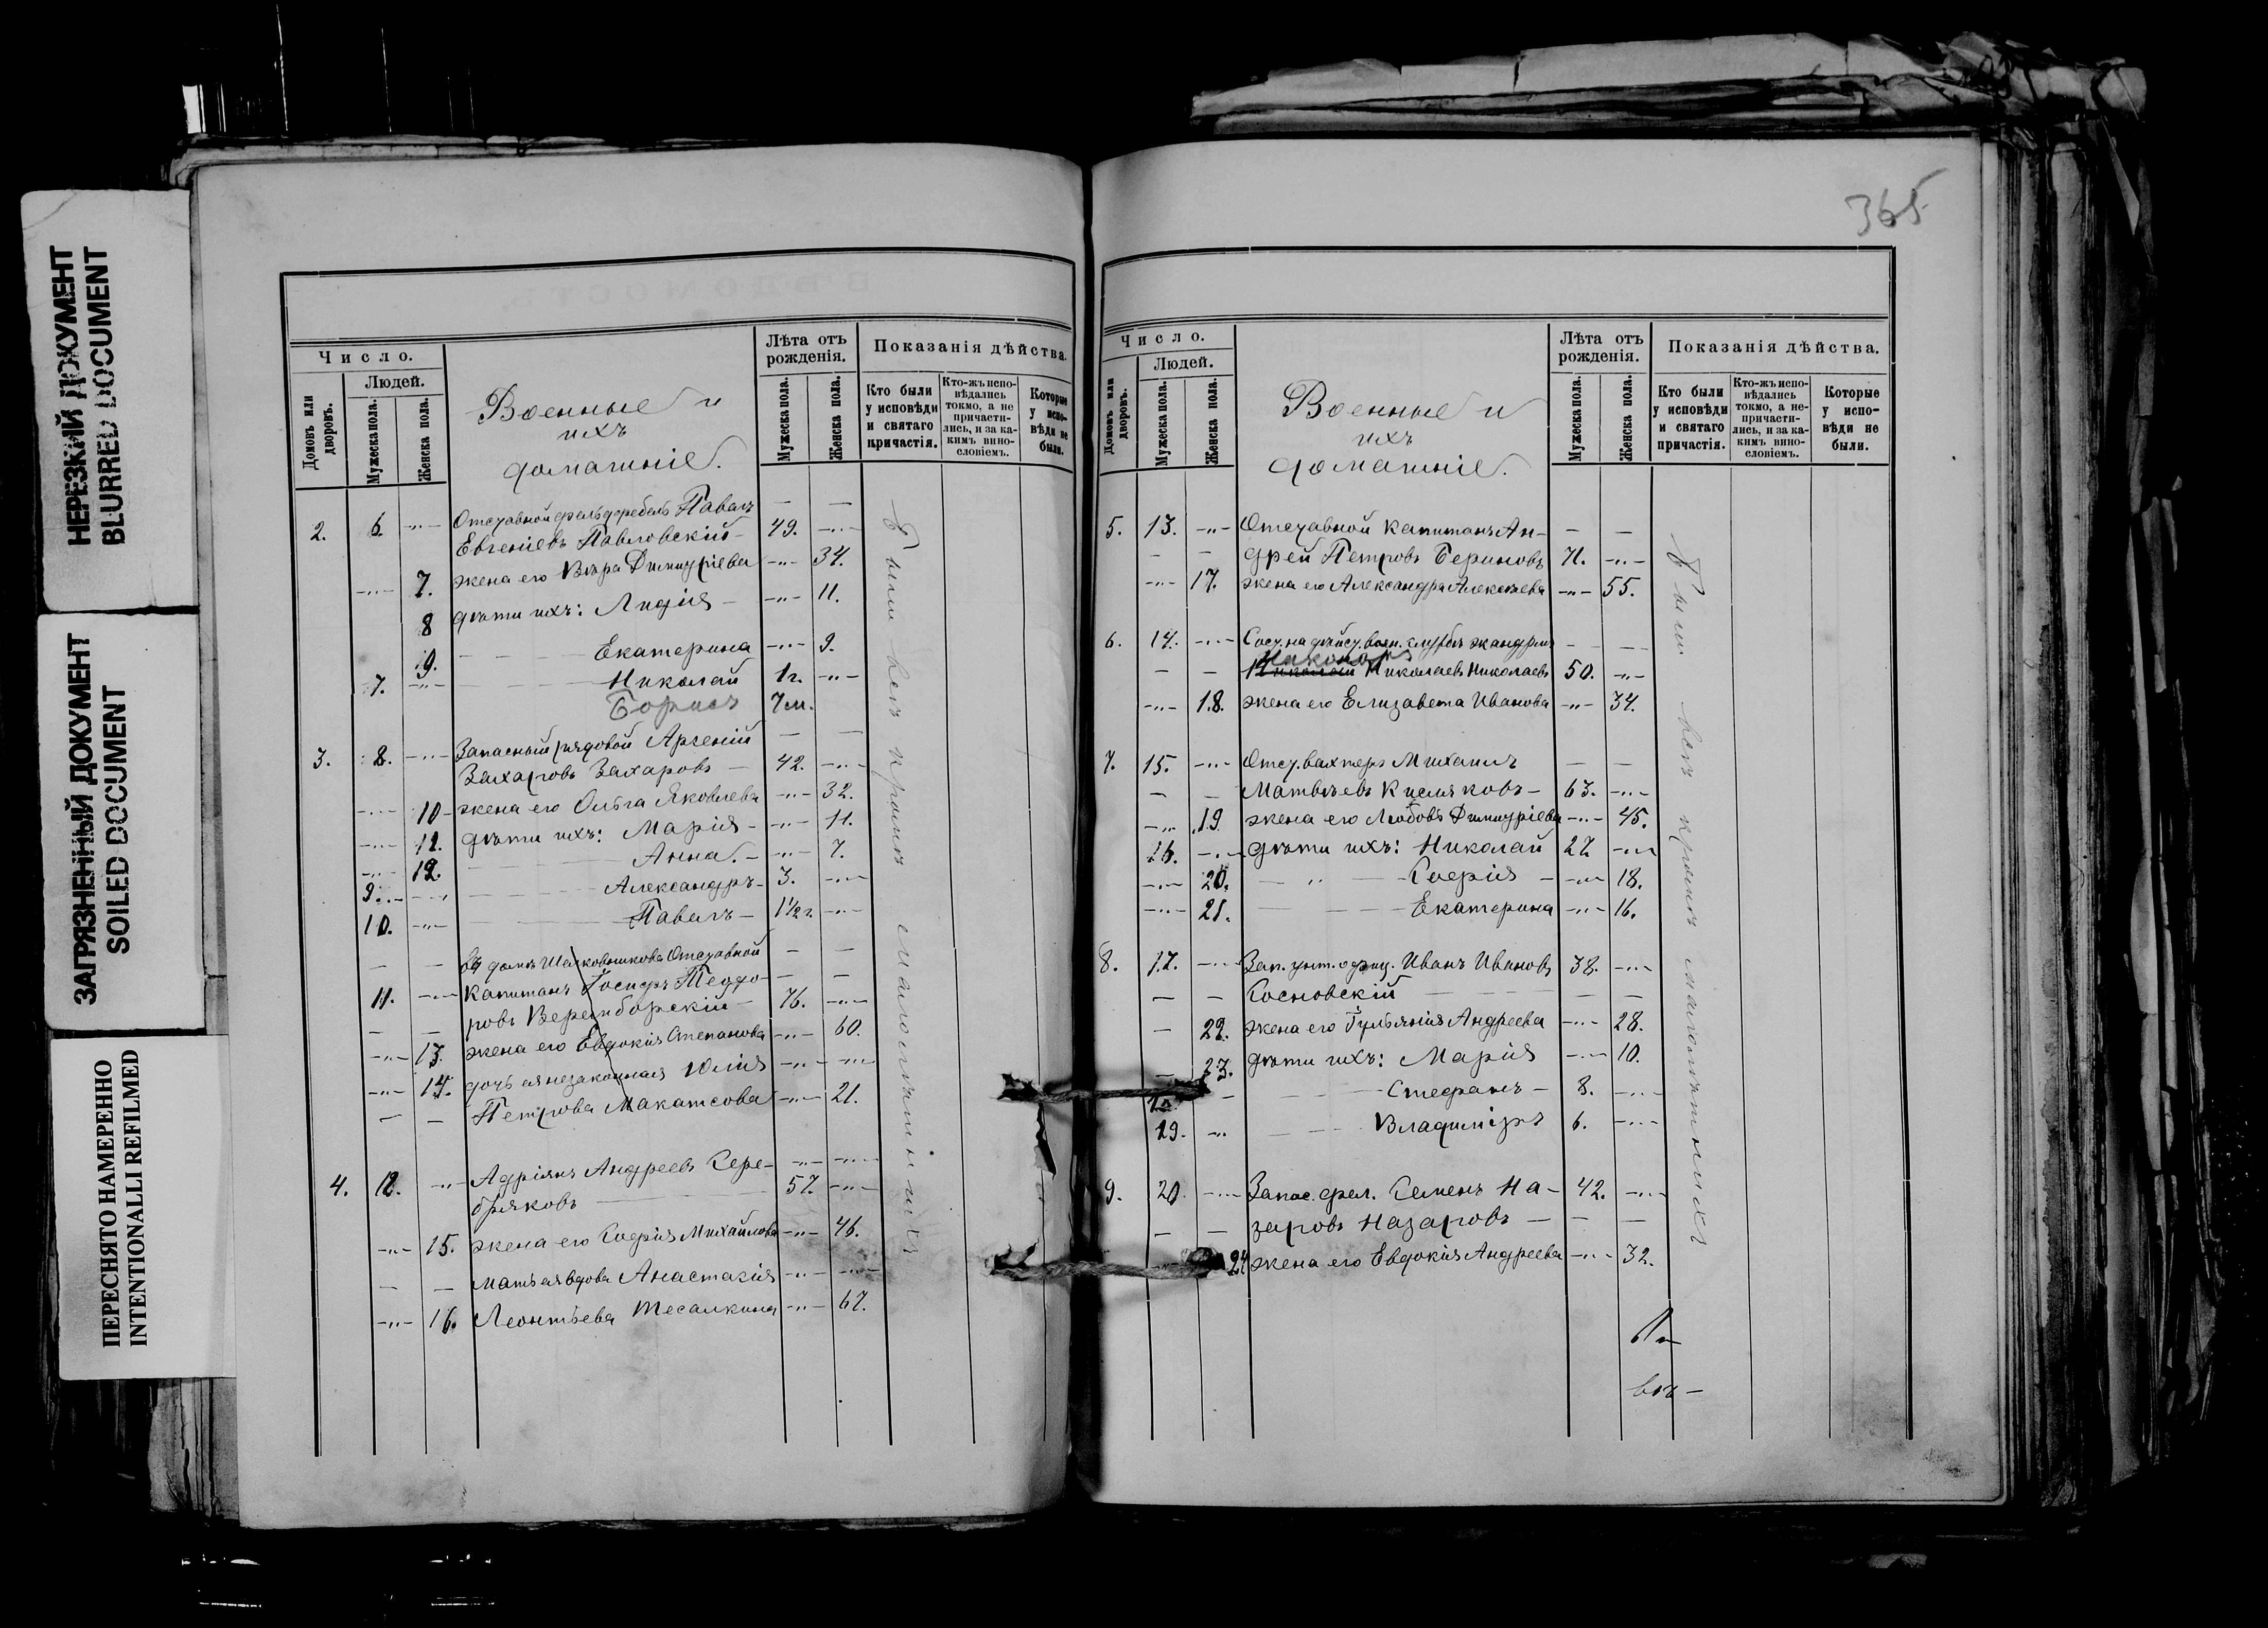 НЕРЕЗКИЙ ДОКУМЕНТ
BLURRED DOCUMENT
ЗАГРЯЗНЕННЫЙ ДОКУМЕНТ
SOILED DOCUMENT
ПЕРЕСНЯТО НАМЕРЕННО
INTENTIONALLI REFILMED
Число.
Людей.
Домовъ или дворовъ.
Мужеска пола.
Женска пола.
Военные и
ихъ
домашніе.
Лѣта отъ рожденія.
Мужеска пола.
Женска пола.
Показанія дѣйства.
Кто были у исповѣди и святаго причастія.
Кто-жъ исповѣдались токмо, а не причастились, и за каким винословіемъ.
Которые у исповѣди не были.
2. 6. -„- Отставной фельдфебель Павелъ — —
Евгеніевъ Павловскій 49. -„-
-„- 7. жена его Вѣра Димитріева -„- 34.
8 дѣти ихъ: Лидія -„- 11.
9. Екатерина -„- 9.
7. -„- Николай 1г. -„-
Борисъ 7м.
3. 8. -„- Запасный рядовой Арсеній — —
Захаровъ Захаровъ — 42. -„-
-„- 10 жена его Ольга Яковлева -„- 32.
-„- 11. дѣти ихъ: Марія -„- 11.
-„- 12. Анна. -„- 7.
9. -„- Александръ 3. -„-
10. -„- Павелъ 1½ г. -„-
— — Въ домѣ Отставной — —
11. -„- Капитанъ Іосифъ Теодо- — —
— — ровъ 76. -„-
-„- 13. жена его Евдокія Степанова -„- 60.
-„- 14. дочь ея незаконная Юлія -„- -„-
— — Петрова Макатсова -„- 21.
4. 12. -„- Адріянъ Андреевъ Сере- -„- -„-
бряковъ 57. -„-
-„- 15. жена его Софія Михайлова -„- 46.
— — мать ея вдова Анастасія -„- -„-
-„- 16. Леонтьева Тесалкина -„- 67.
Были всѣ кромѣ малолѣтнихъ
365
Число.
Людей.
Домовъ или дворовъ.
Мужеска пола.
Женска пола.
Военные и
ихъ
домашніе.
Лѣта отъ рожденія.
Мужеска пола.
Женска пола.
Показанія дѣйства.
Кто были у исповѣди и святаго причастія.
Кто-жъ исповѣдались токмо, а не-причастились, и за каким винословіемъ.
Которые у исповѣди не были.
5. 13. -„- Отставной Капитанъ Ан- — —
— — дрей Петровъ Бериновъ 71. -„-
-„- 17. жена его Александра Алексѣева -„- 55.
6. 14. -„- Сост. на дѣйст. воен. службѣ жандармъ — —
Никаноръ
— — Николай Николаевъ Николаевъ 50. -„-
-„- 18. жена его Елизавета Иванова -„- 34.
7. 15. -„- Отст. вахтеръ Михаилъ — —
— — Матвѣевъ Кисляковъ — 63. -„-
-„- 19. жена его Любовь Димитріева -„- 45.
16. -„- дѣти ихъ: Николай 22 -„-
-„- 20. — „ — Софія -„- 18.
-„- 21. Екатерина -„- 16.
8. 17. -„- Зап. унт. офиц. Иванъ Ивановъ 38. -„-
— — Сосновскій — —
— 22. жена его Іульянія Андреева -„- 28.
— 23. дѣти ихъ: Марія -„- 10.
Стефанъ — 8. -„-
19. -„- Владиміръ 6. -„-
9. 20. -„- Запас. фел. Семенъ На- 42. -„-
— — заровъ Назаровъ — — —
24 жена его Евдокія Андреева -„- 32.
Были всѣ кромѣ малолѣтнихъ